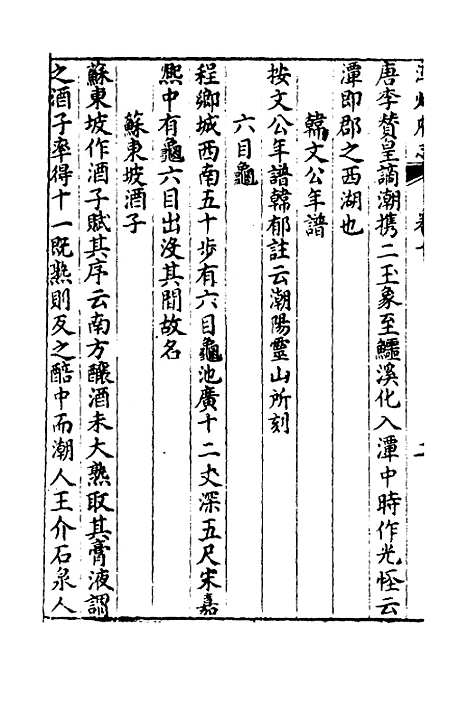 唐李贊皇謫潮携二玉象至鱷溪化入潭中時作光怪云
潭即郡之西湖也
韓文公年譜
按文公年譜韓郁註云潮陽靈山所刻
六目龜
程鄉城西南五十步有六目龜池廣十二丈深五尺宋嘉
熙中有龜六目出没其間故名
蘇東坡酒子
蘇東坡作酒子賦其序云南方釀酒未大熟取其膏液謂
之酒子率得十一旣熟則反之醅中而潮人王介石泉人